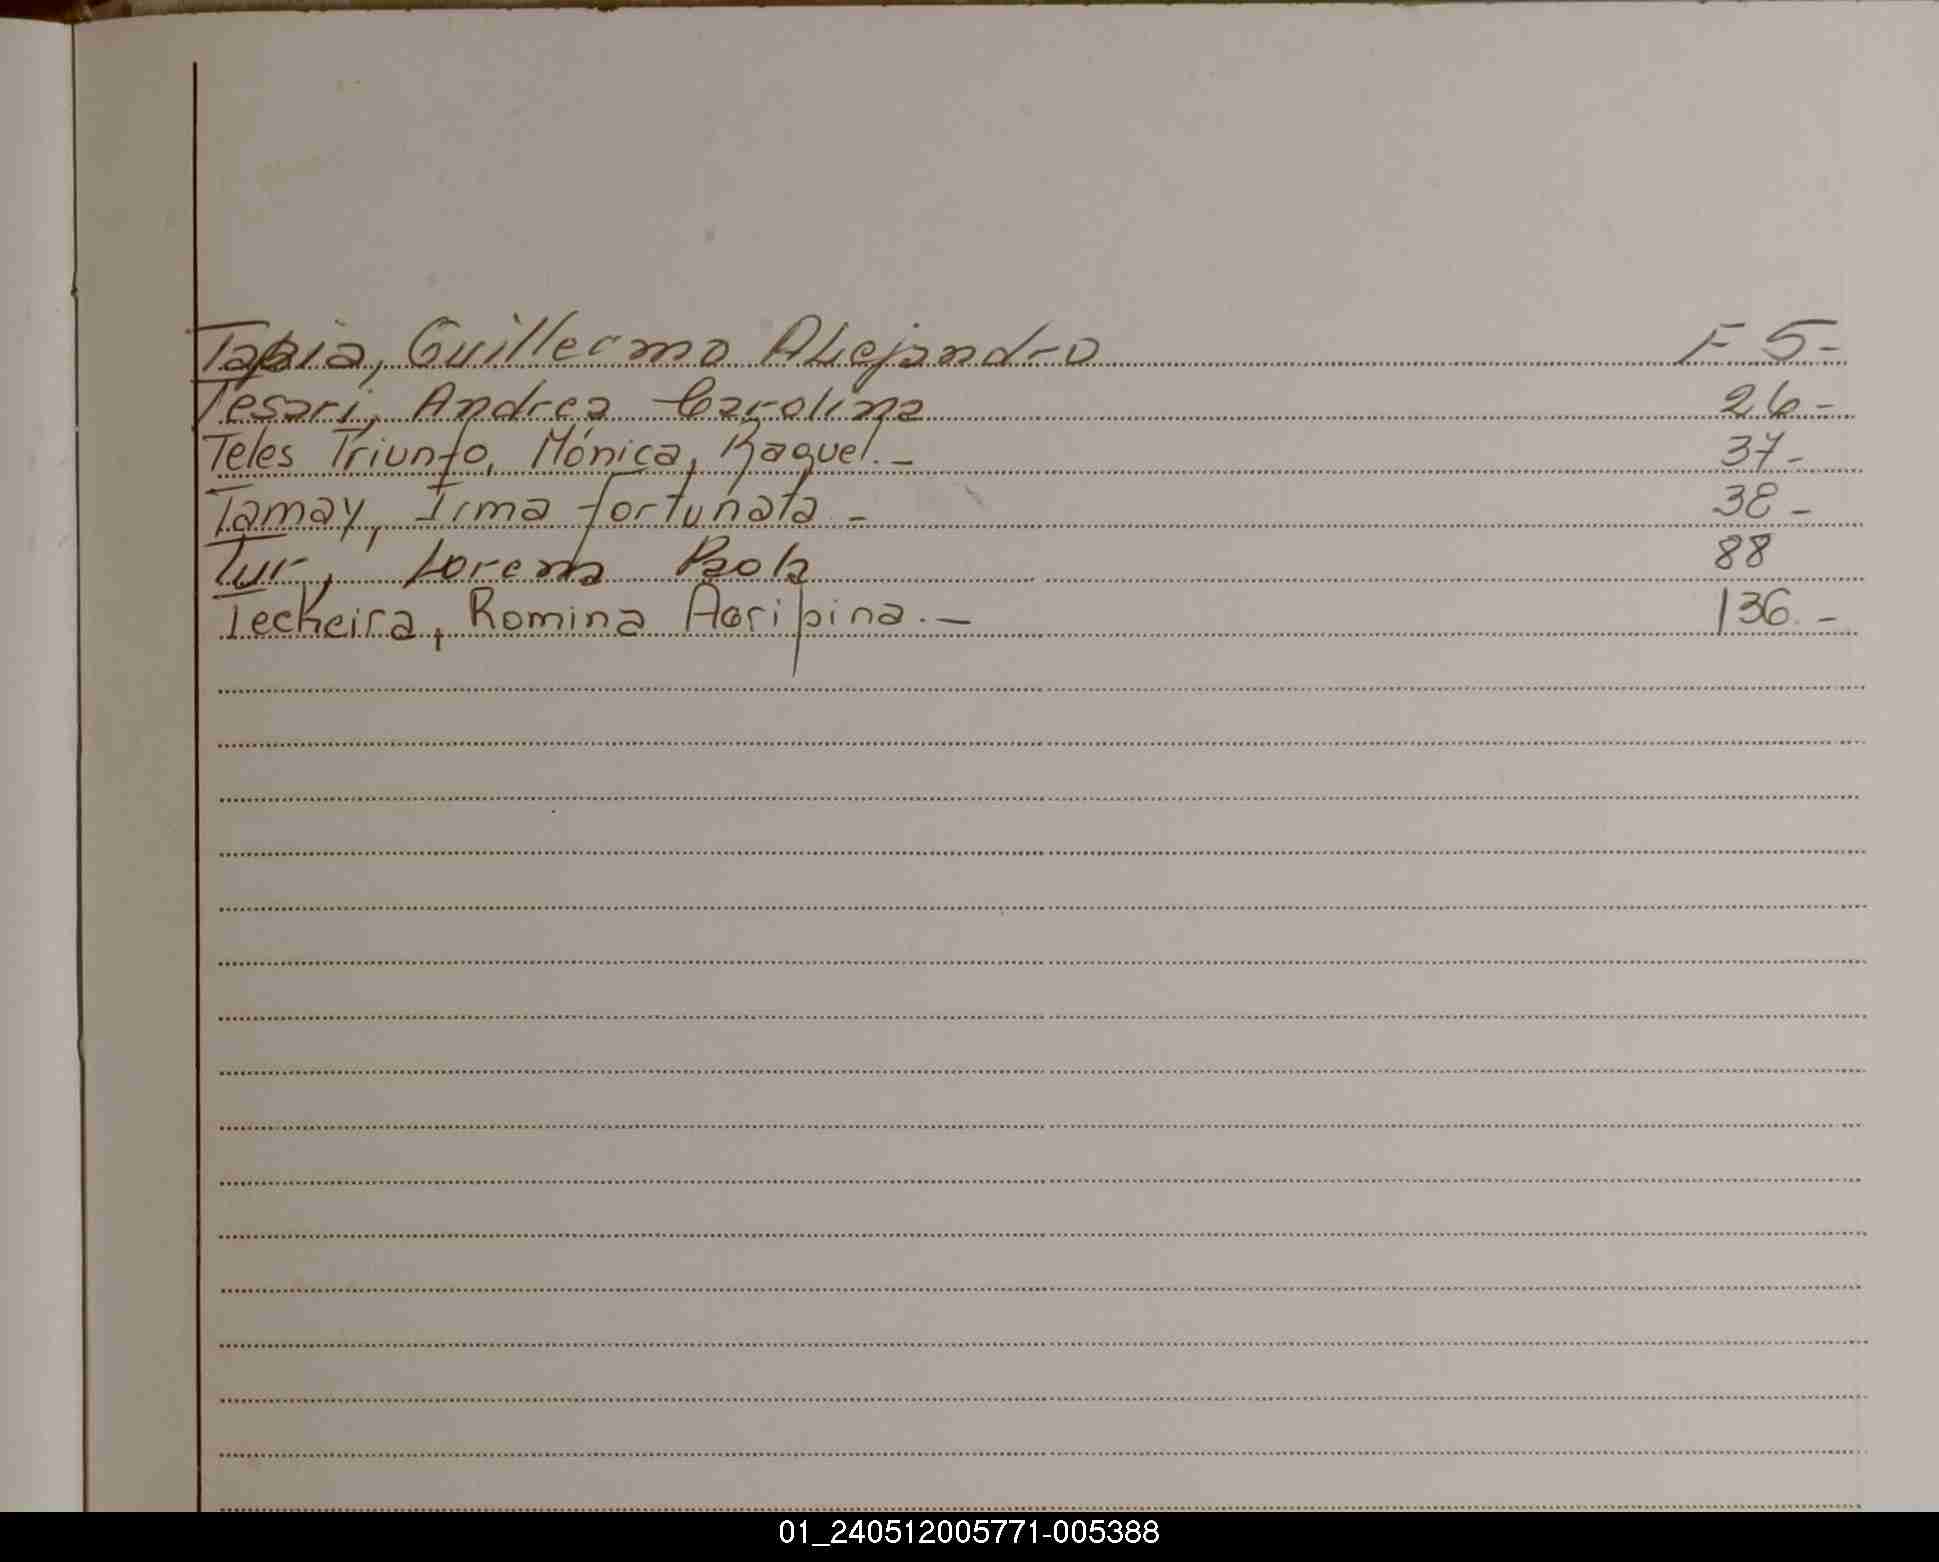 Tapia, Guillermo Alejandro F 5-
Tesari, Andrea Carolina 26-
Teles Triunfo, Mónica, Raquel.- 37-
Tamay, Irma fortunata - 38-
Tur, Lorena Paola 88
Teckeira, Romina Agripina.- 136.-
01_240512005771-005388